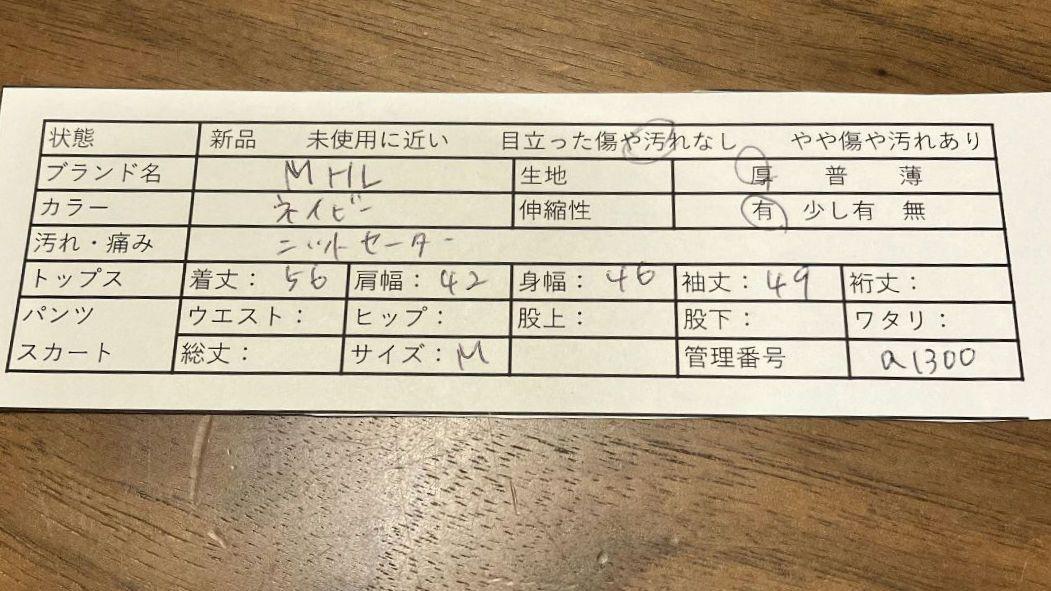 状態 新品 未使用に近い 目立った傷や汚れなし やや傷や汚れあり
ブランド名 MHL 生地 厚 普 薄
カラー ネイビー 伸縮性 有 少し有 無
汚れ・痛み ニットセーター
トップス 着丈：56 肩幅：42 身幅：46 袖丈：49 裄丈：
パンツ ウエスト： ヒップ： 股上： 股下： ワタリ：
スカート 総丈： サイズ：M 管理番号 a1300